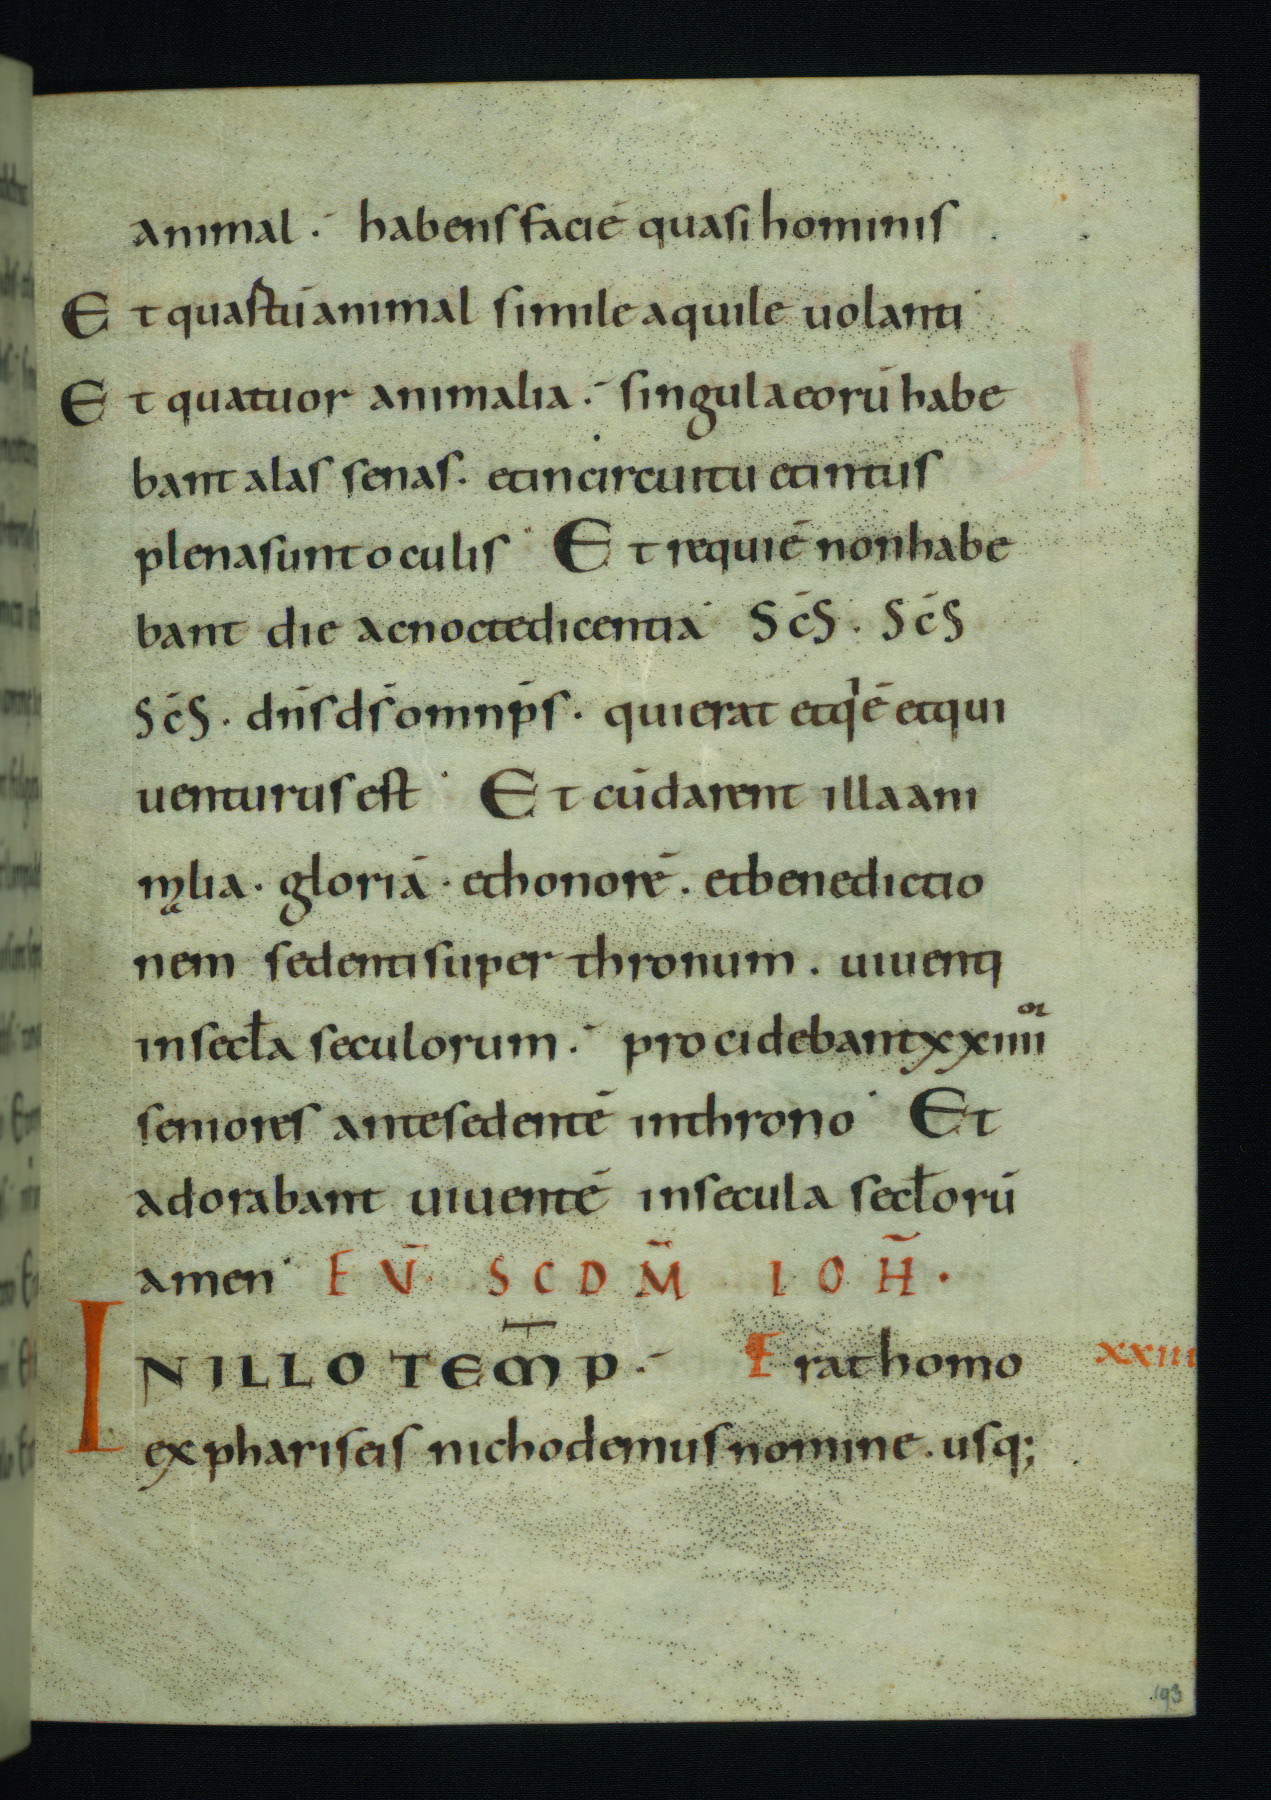 animal · habens faciē quasi hominis
Et quartū animal simile aquile uolanti
Et quatuor animalia · singula eorū habe
bant alas senas · et in circuitu et intus
plena sunt oculis · Et requiē non habe
bant die ac nocte dicentia · Sc̄s · Sc̄s
Sc̄s · dn̄s ds̄ omnp̄s · qui erat et qͥ ē et qui
uenturus est · Et cū darent illa ani
mąlia · gloriā · et honorē · et benedictio
nem sedenti super thronum · uiuenti
in secła seculorum · procidebant xxiiiior
seniores ante sedentē in throno · Et
adorabant uiuentē in secula secłorū
amen · EV̄ · SCDM̄ IOH̄ ·
IN ILLO TEMP̄ · Erat homo xxiii
ex phariseis nichodemus nomine · usq;
193